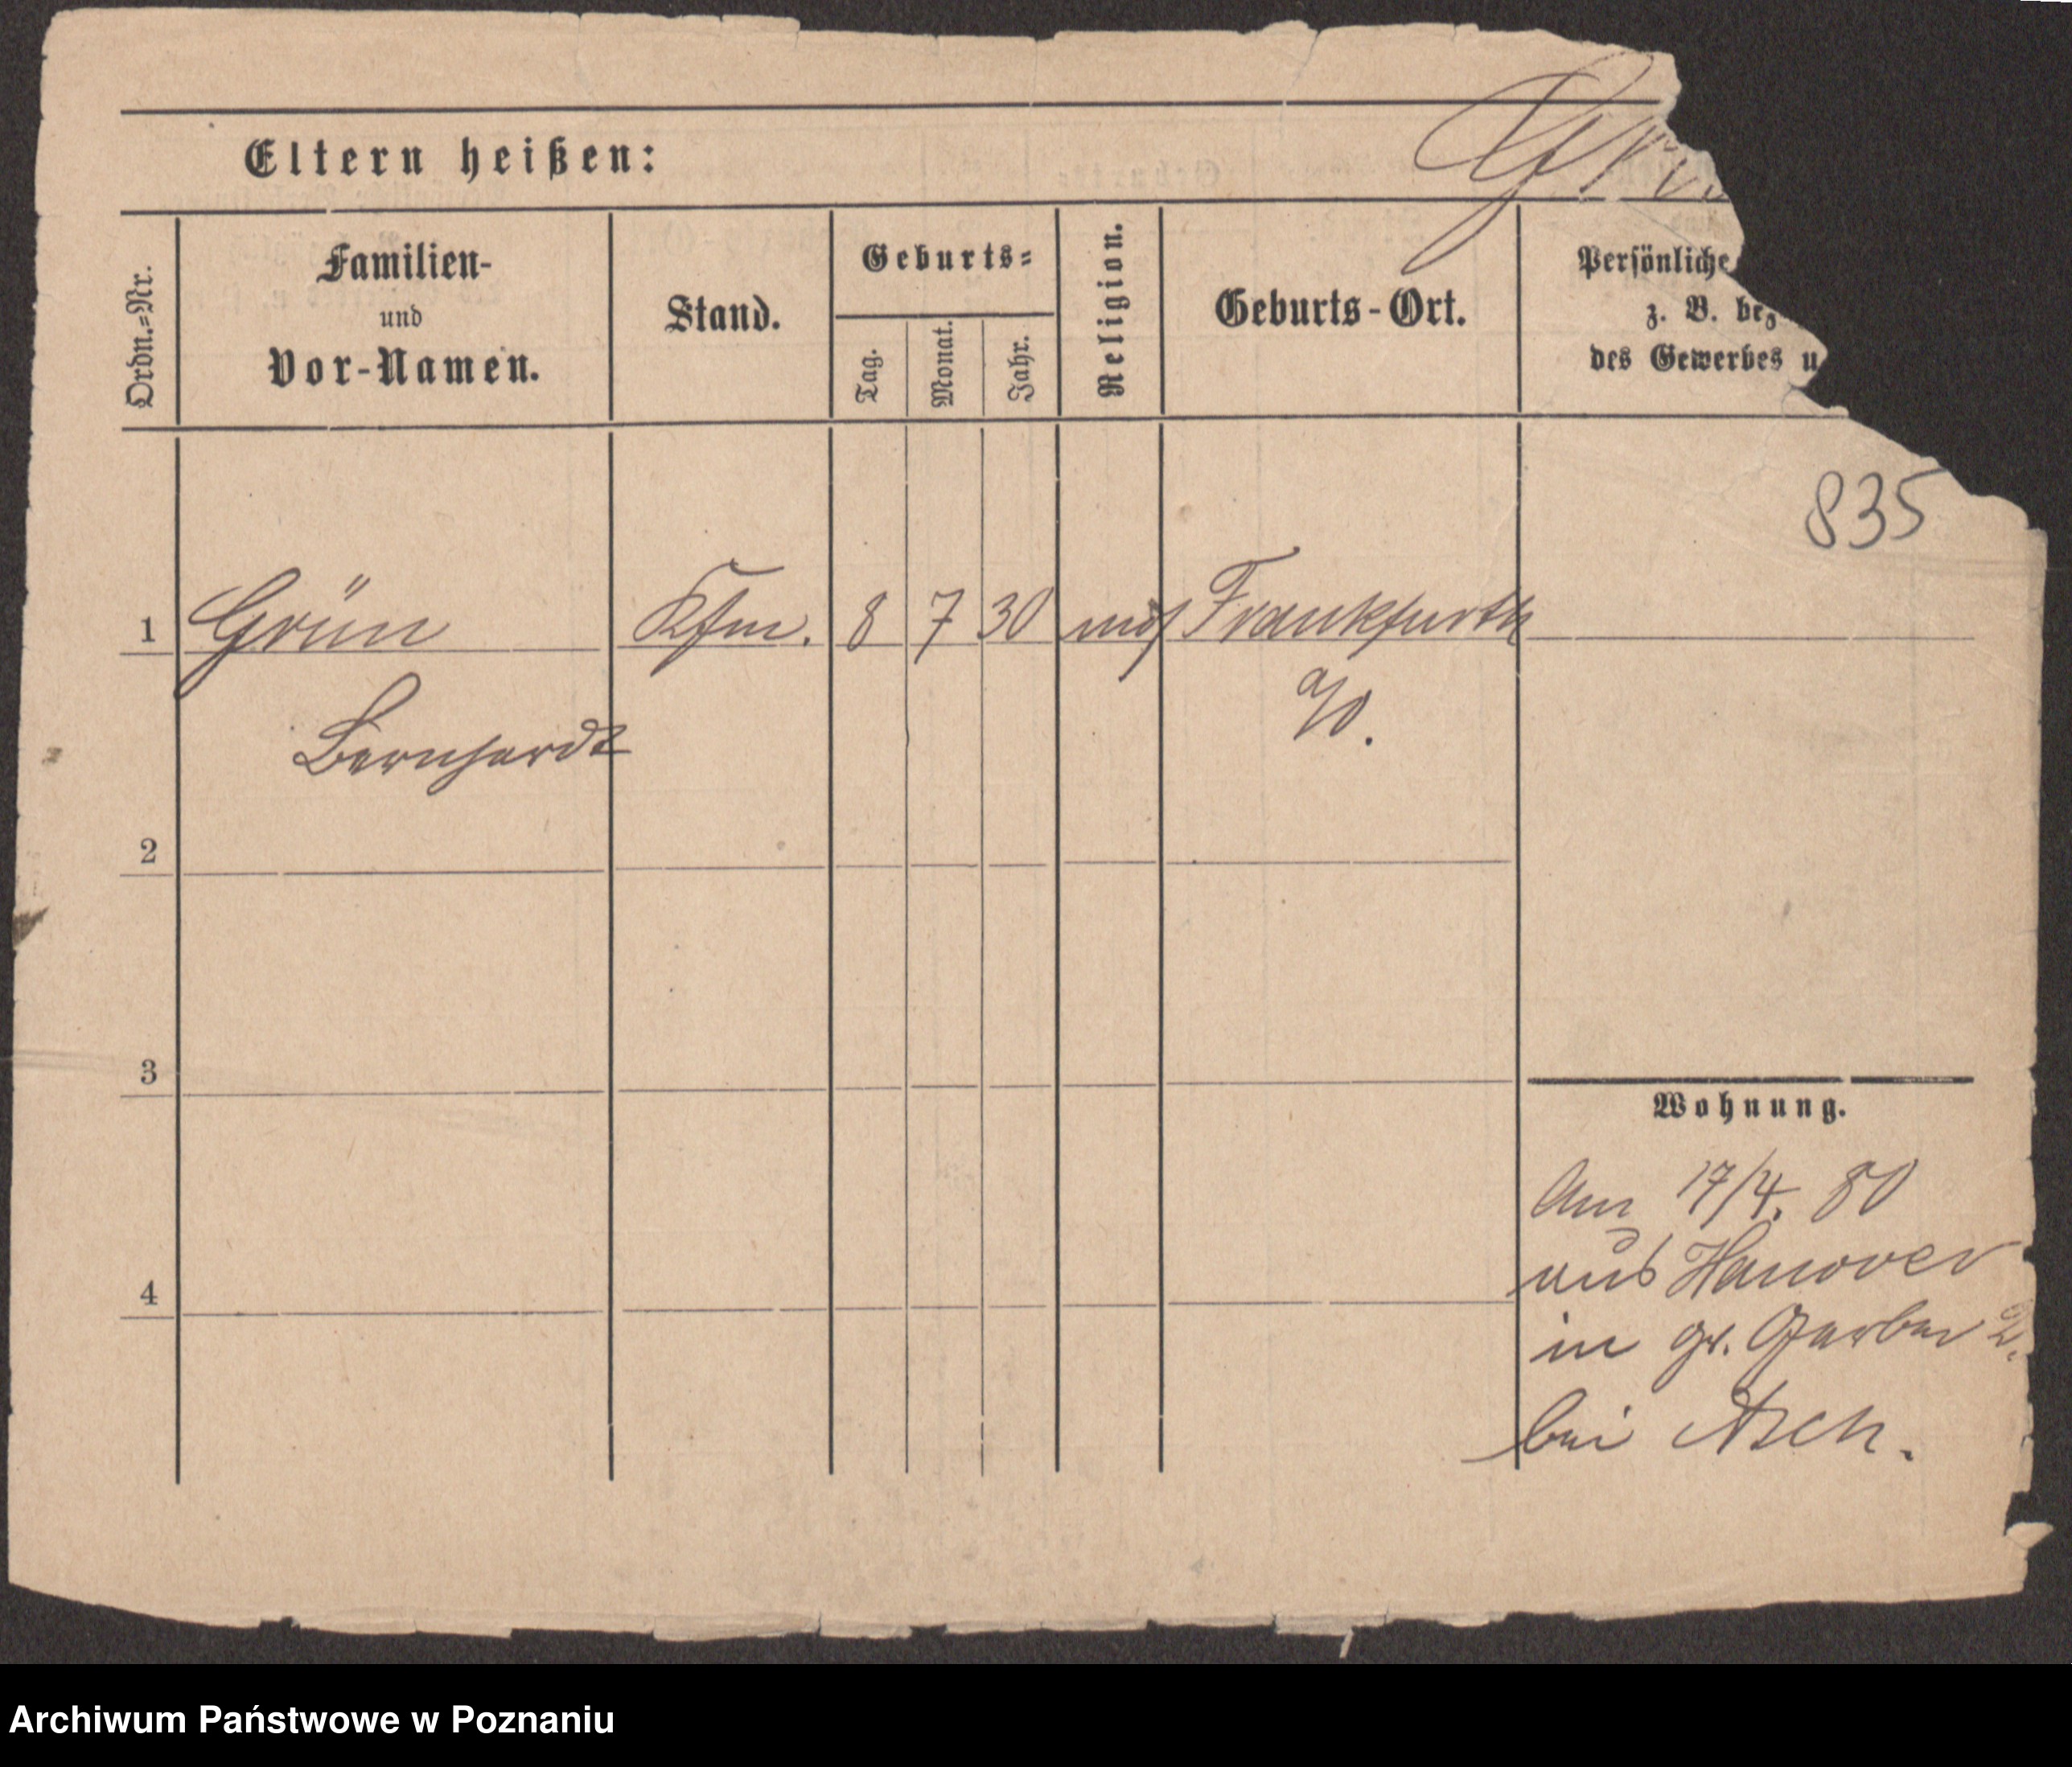 Eltern heißen:
Ordn.=Nr.
Familien-
und
Vor-Namen.
Stand.
Geburts=
Tag.
Monat.
Jahr.
Religion.
Geburts-Ort.
Persönliche
z. B. bez
des Gewerbes u
835
1 Grün Kfm. 8 7 30 mos Frankfurth
Bernhardt a/O.
2
3
Wohnung.
Am 17/4. 80
aus Hanover
4
in gr. Gerber 2.
bei Asch.
Archiwum Państwowe w Poznaniu